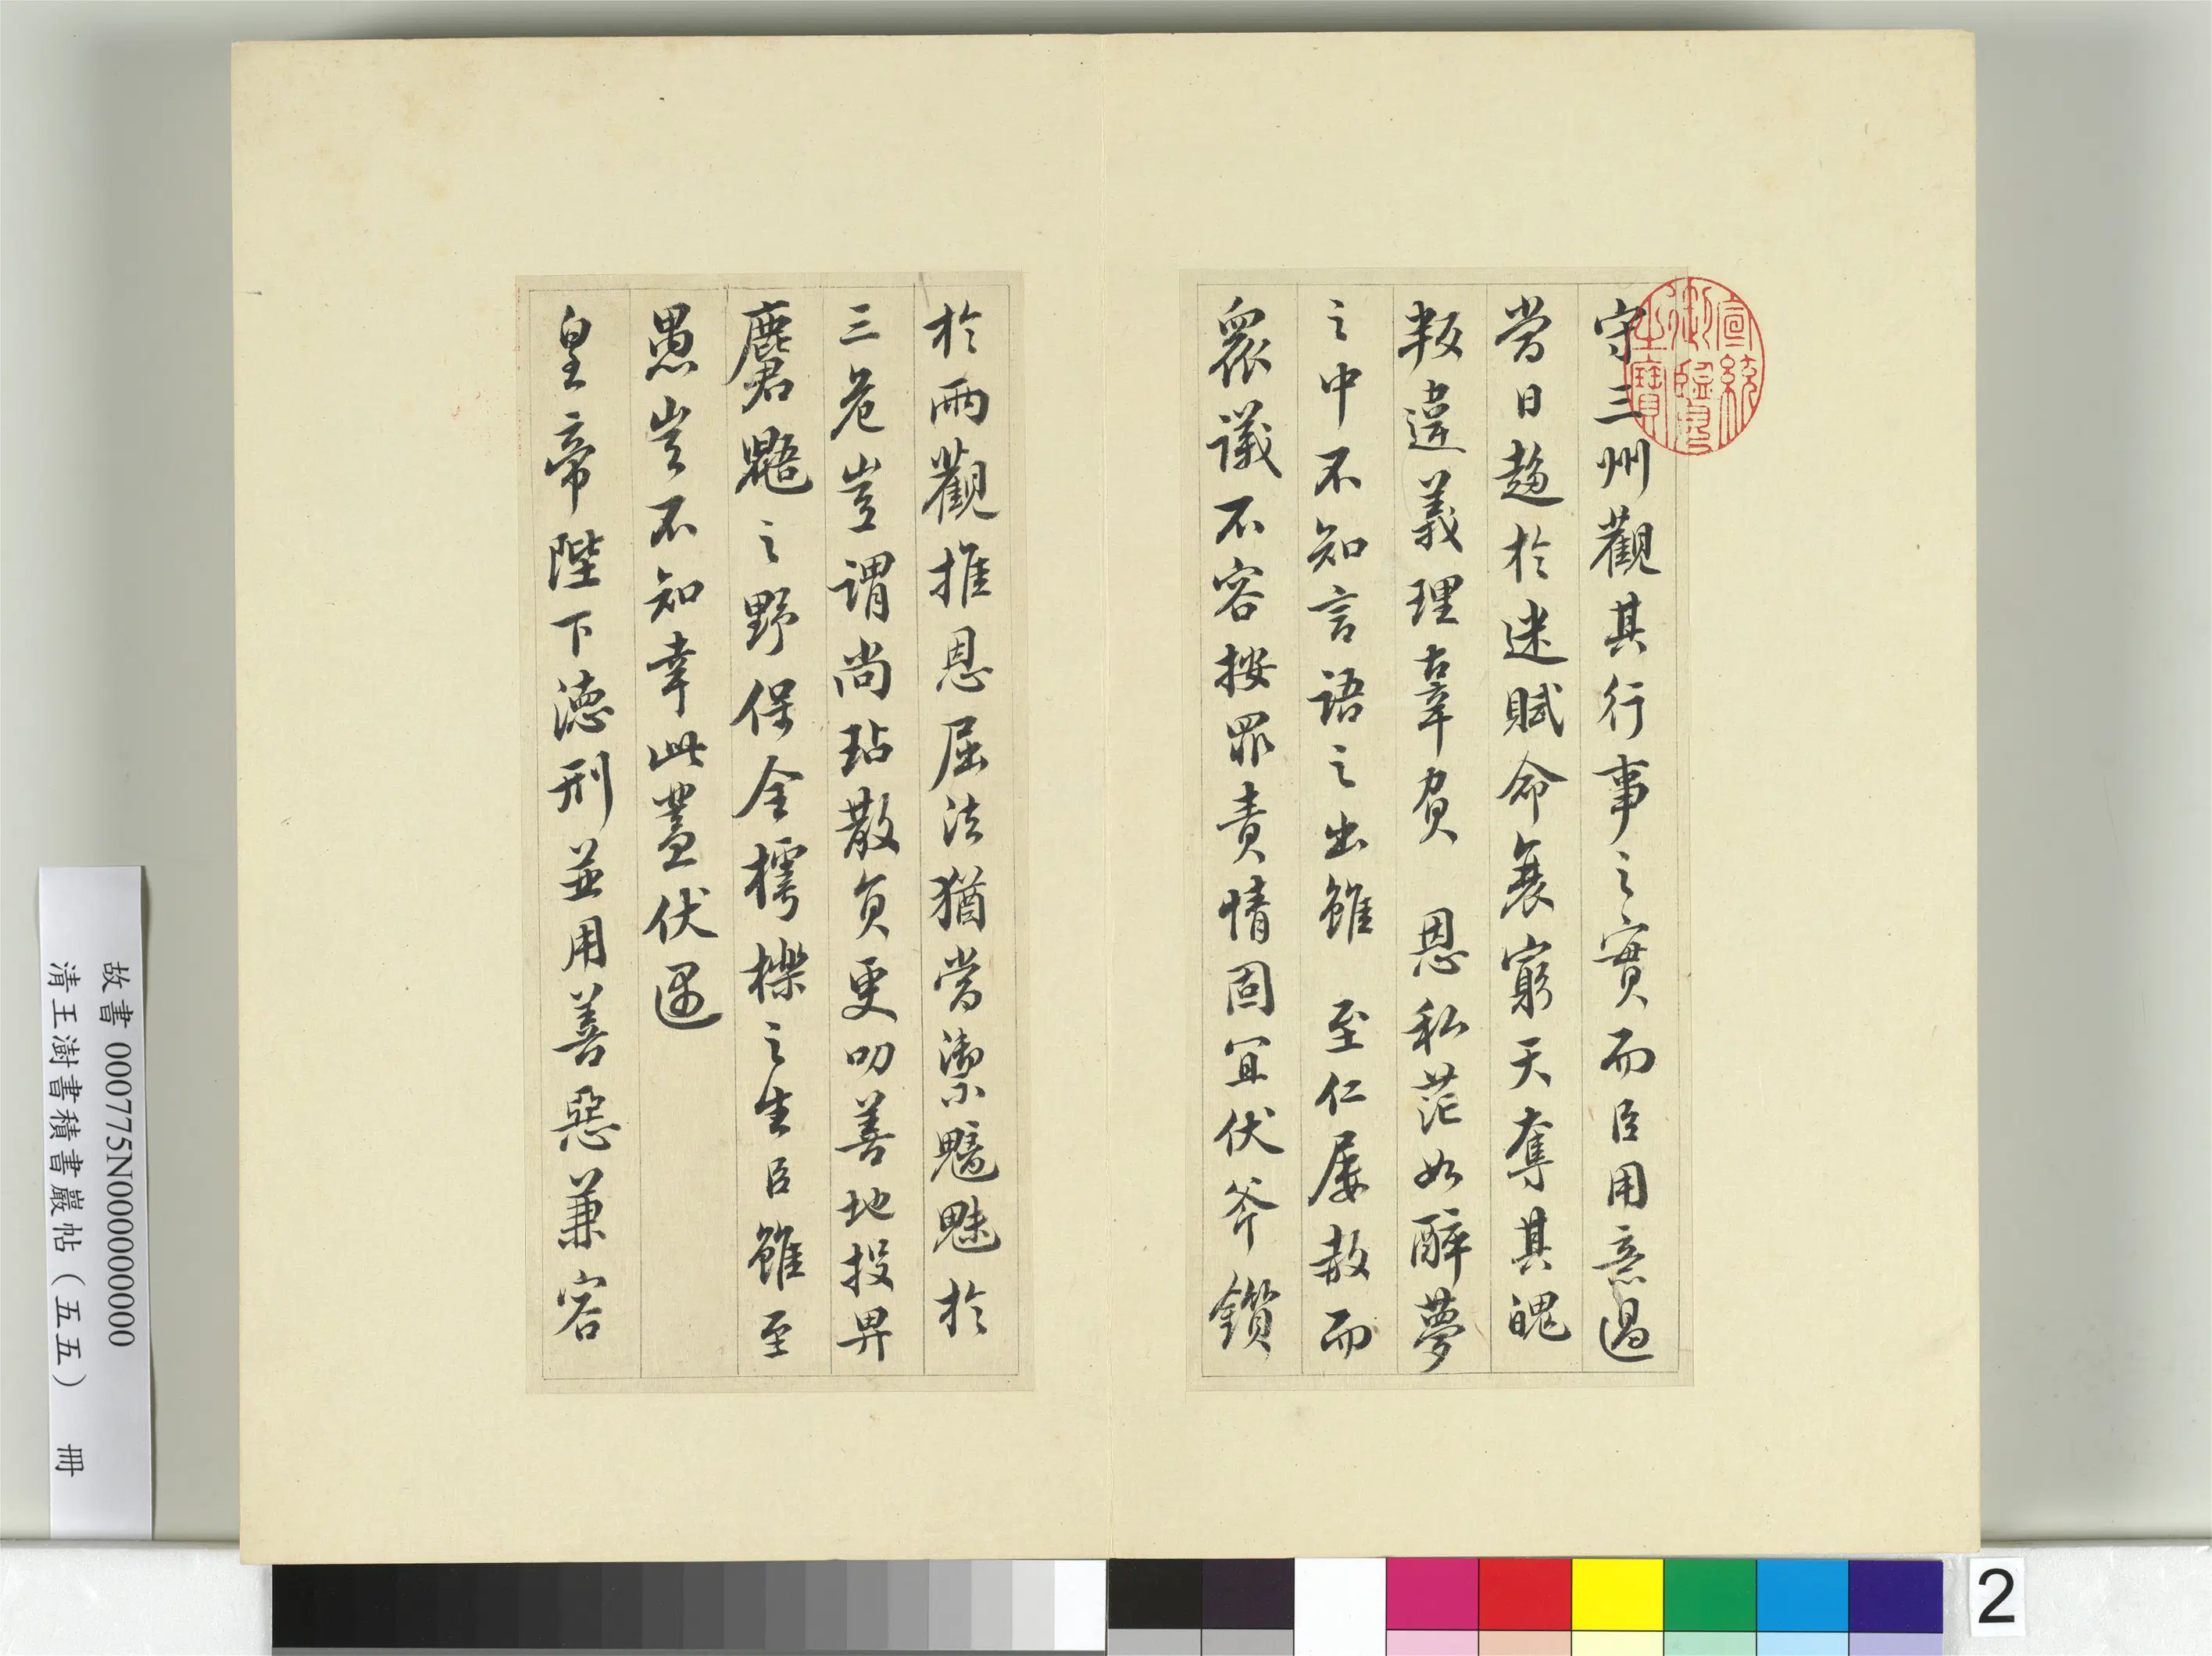 守三州觀其行事之實而臣用意過
當日趨於迷賦命衰窮天奪其魄
叛違義理辜負 恩私茫如醉夢
之中不知言語之出雖 至仁屢赦而
眾議不容按罪責情固宜伏斧鑕
於兩觀推恩屈法猶當禦魑魅於
三危豈謂尚玷散員更叨善地投畀
麏鼯之野保全樗櫟之生臣雖至
愚豈不知幸此蓋伏遇
皇帝陛下德刑並用善惡兼容
宣統御覽之寶
故書 000775N000000000
清王澍書積書巖帖(五五) 冊
2